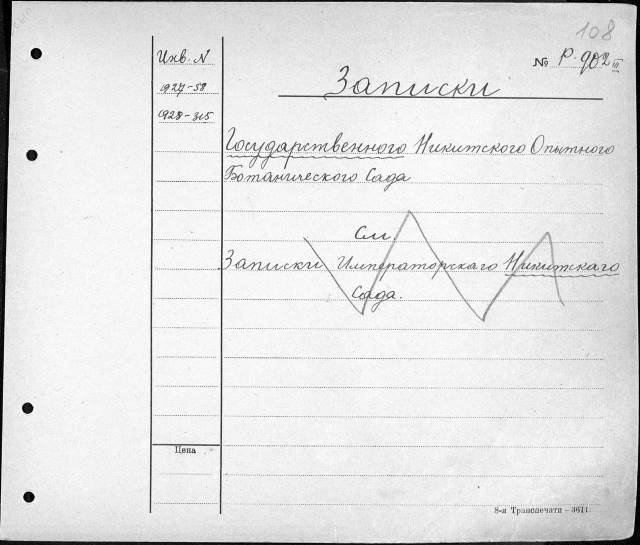 108
Инв. N
№ Р-902 III
Записки
1927-58
1928-315
Государственного Никитского Опытного
Ботанического Сада
См.
Записки Императорскаго Никитскаго
Сада.
Цена
8-я Транспечати - 3611.